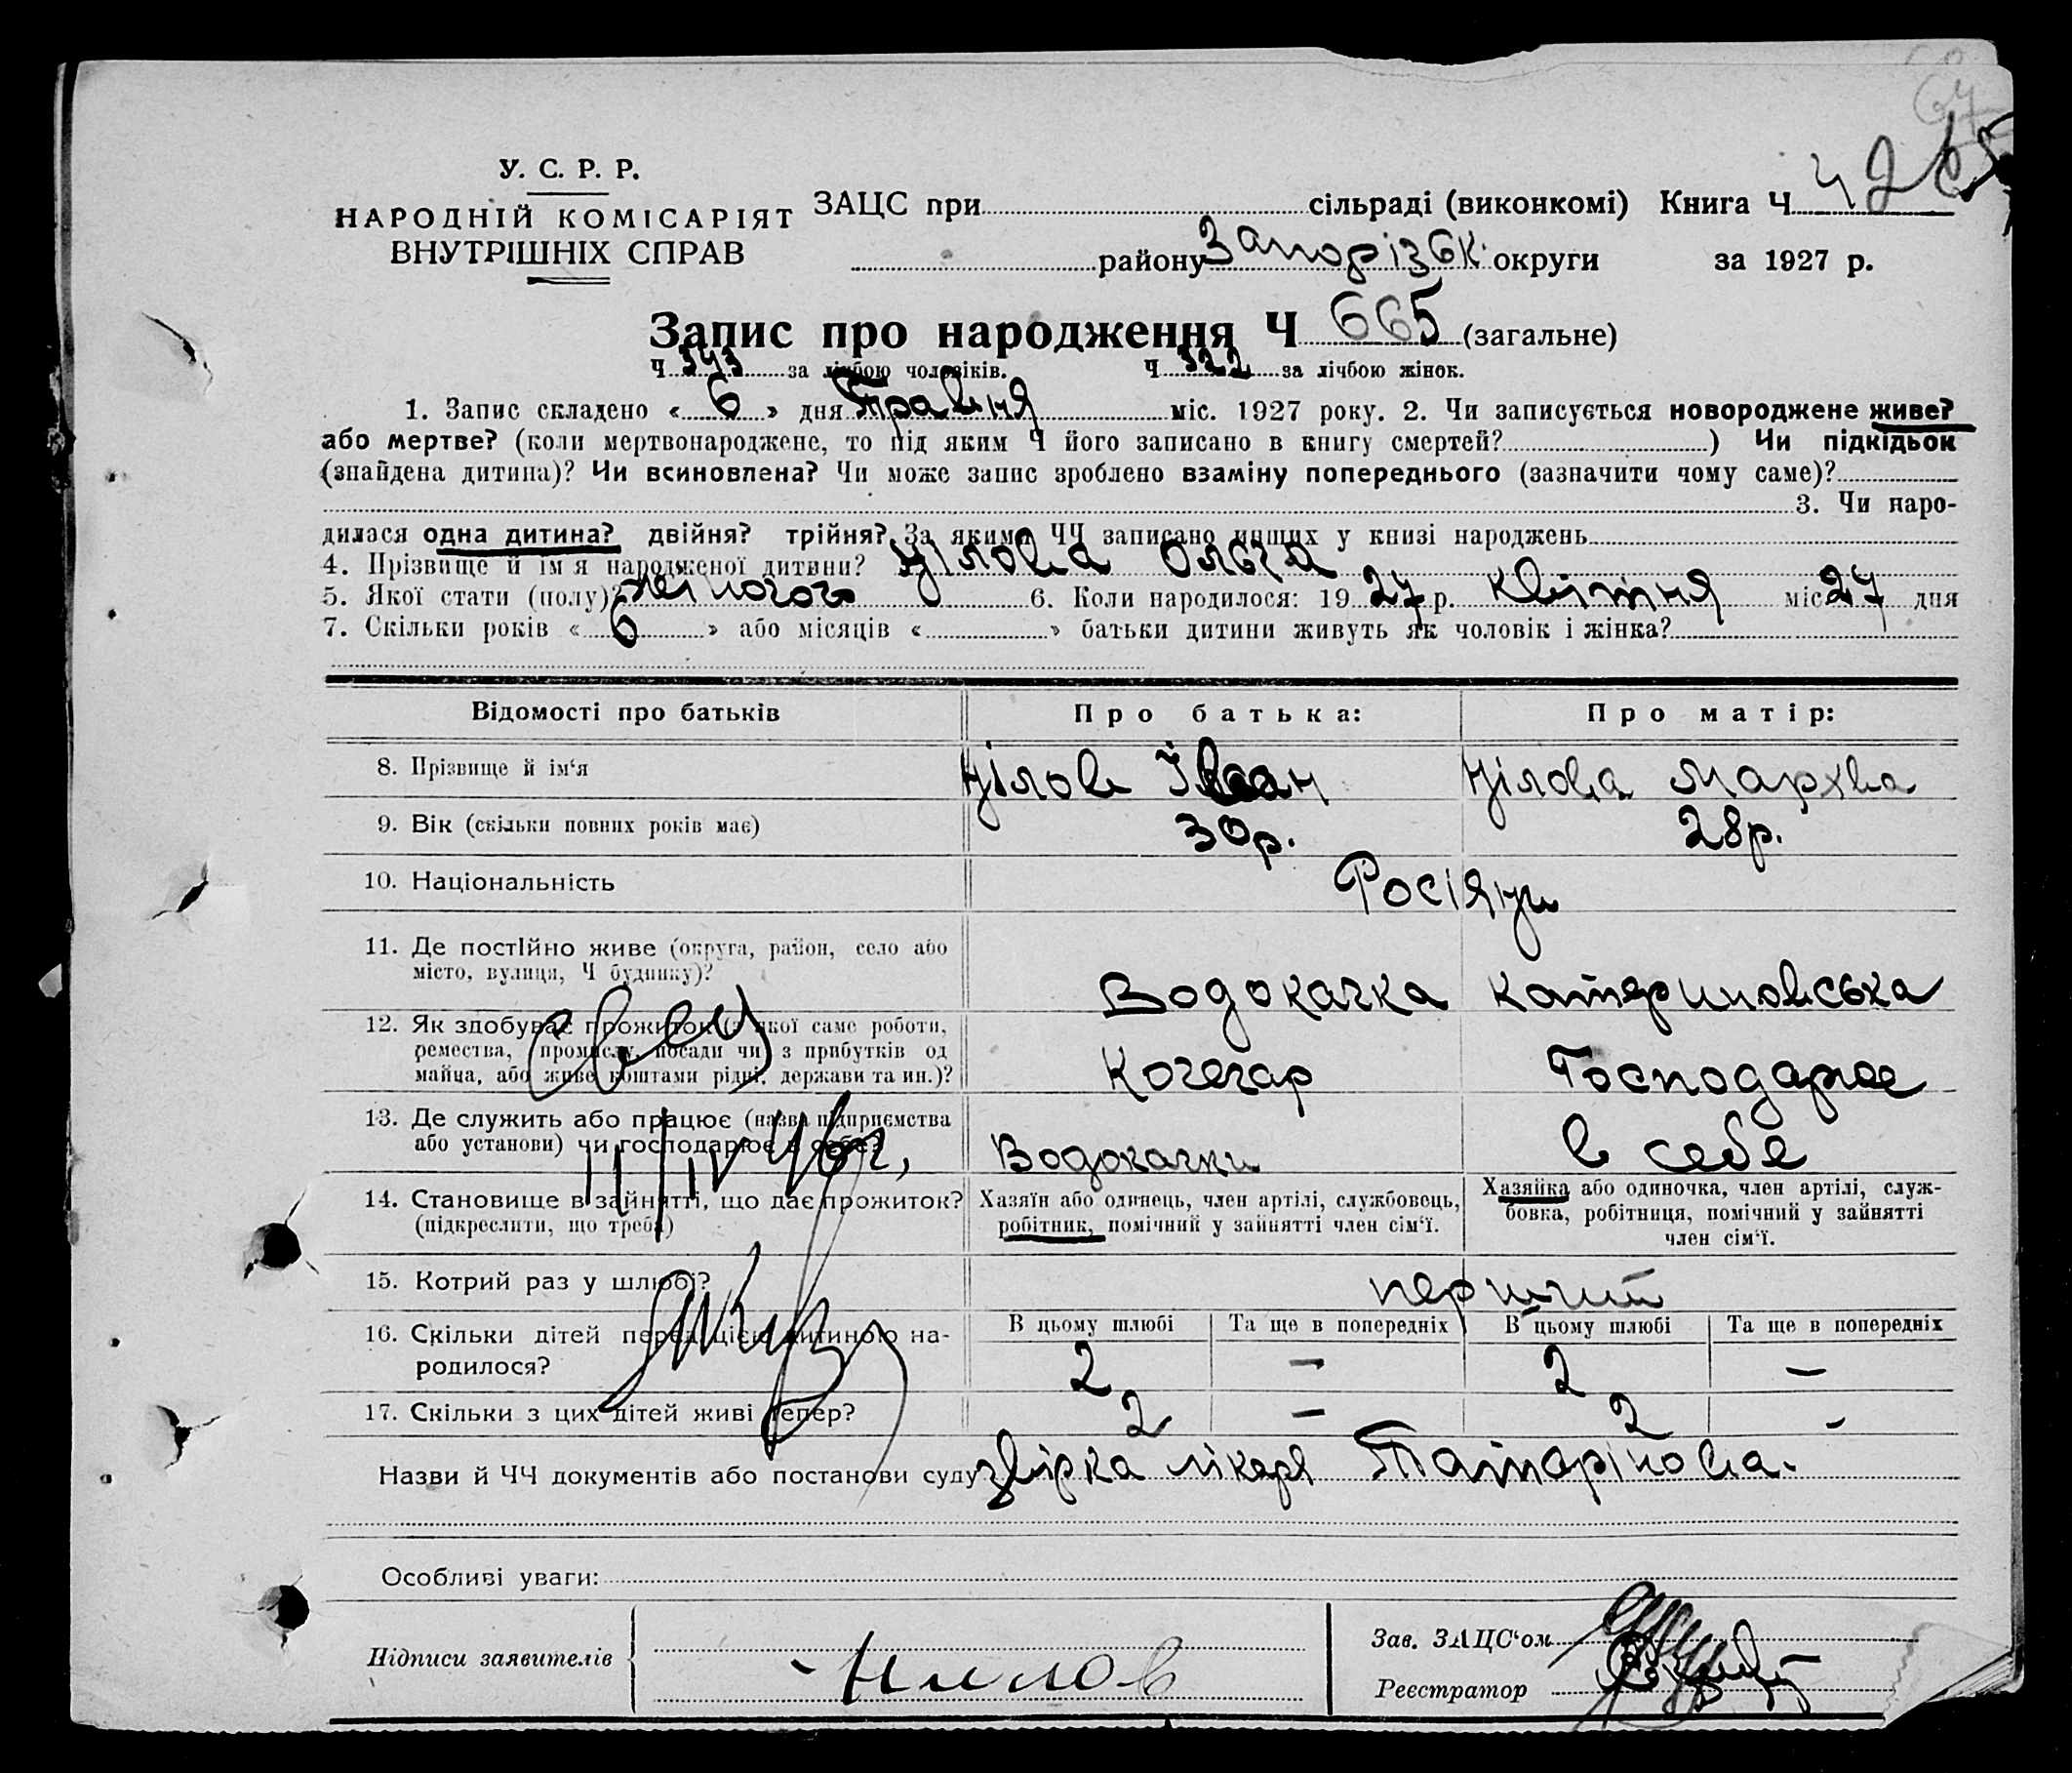 У. С. Р. Р.
НАРОДНІЙ КОМІСАРІЯТ
ВНУТРІШНІХ СПРАВ
ЗАЦС при сільраді (виконкомі) Книга Ч
району Запорізьк. округи за 1927 р.
Запис про народження Ч 665 (загальне)
Ч 343 за лічбою чоловіків. Ч 322 за лічбою жінок.
1. Запис складено « 6 » дня Травня міс. 1927 року. 2. Чи записується новороджене живе?
або мертве? (коли мертвонароджене, то під яким Ч його записано в книгу смертей? ) Чи підкідьок
(знайдена дитина)? Чи всиновлена? Чи може запис зроблено взаміну попереднього (зазначити чому саме)?
3. Чи наро-
дилася одна дитина? двійня? трійня? За якими ЧЧ записано инших у книзі народжень
4. Прізвище й ім'я народженої дитини? Нілова Ольга
5. Якої стати (полу)? жіночого 6. Коли народилося: 19 27 р. квітня міс 27 дня
7. Скільки років « 6 » або місяців « » батьки дитини живуть як чоловік і жінка?
Відомості про батьків Про батька: Про матір:
8. Прізвище й ім'я Нілов Іван Нілова Мархва
9. Вік (скільки повних років має) 30р. 28р.
10. Національність Росіяни
11. Де постійно живе (округа, район, село або
місто, вулиця, Ч будинку)? Водокачка Катериновська
12. Як здобуває прожиток (з якої саме роботи,
ремества, промислу, посади чи з прибутків од
майна, або живе коштами рідні, держави та ин.)? Кочегар Господарює
13. Де служить або працює (назва підприємства
або установи) чи господарює в себе? Водокачки в себе
14. Становище в зайнятті, що дає прожиток?
(підкреслити, що треба)
Хазяїн або одинець, член артілі, службовець,
робітник, помічний у зайнятті член сім'ї.
Хазяйка або одиночка, член артілі, служ-
бовка, робітниця, помічний у зайнятті
член сім'ї.
15. Котрий раз у шлюбі? перший
16. Скільки дітей перед цією дитиною на-
родилося?
В цьому шлюбі Та ще в попередніх В цьому шлюбі Та ще в попередніх
2 – 2 –
17. Скільки з цих дітей живі тепер? 2 – 2 –
Назви й ЧЧ документів або постанови суду звірка лікаря Татарінова.
Особливі уваги:
Підписи заявителів Нилов
Зав. ЗАЦС'ом
Реєстратор